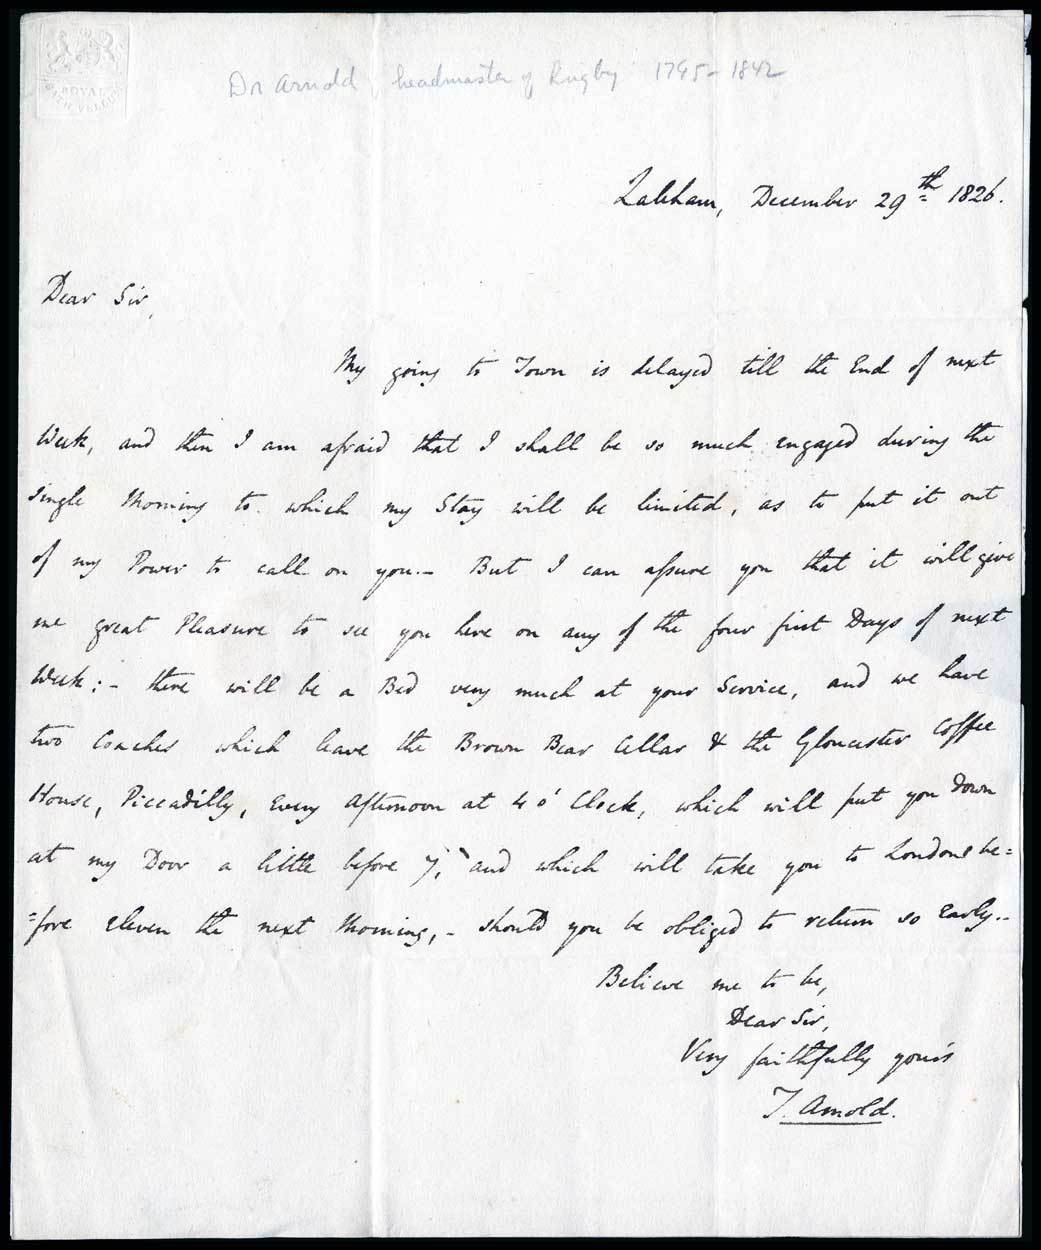 ROYAL
Dr Arnold, headmaster of Rugby 1795-1842
Laleham, December 29th 1826.
Dear Sir,
My going to Town is delayed till the End of next
Week, and then I am afraid that I shall be so much engaged during the
single Morning to which my Stay will be limited, as to put it out
of my Power to call on you.- But I can assure you that it will give
me great Pleasure to see you here on any of the four first Days of next
Week:- there will be a Bed very much at your Service, and we have
two Coaches which leave the Brown Bear Cellar & the Gloucester Coffee
House, Piccadilly, Every Afternoon at 4 o' Clock, which will put you down
at my Door a little before 7, and which will take you to London be=
=fore eleven the next Morning,- should you be obliged to return so Early.-
Believe me to be,
Dear Sir,
Very faithfully yours
T. Arnold.